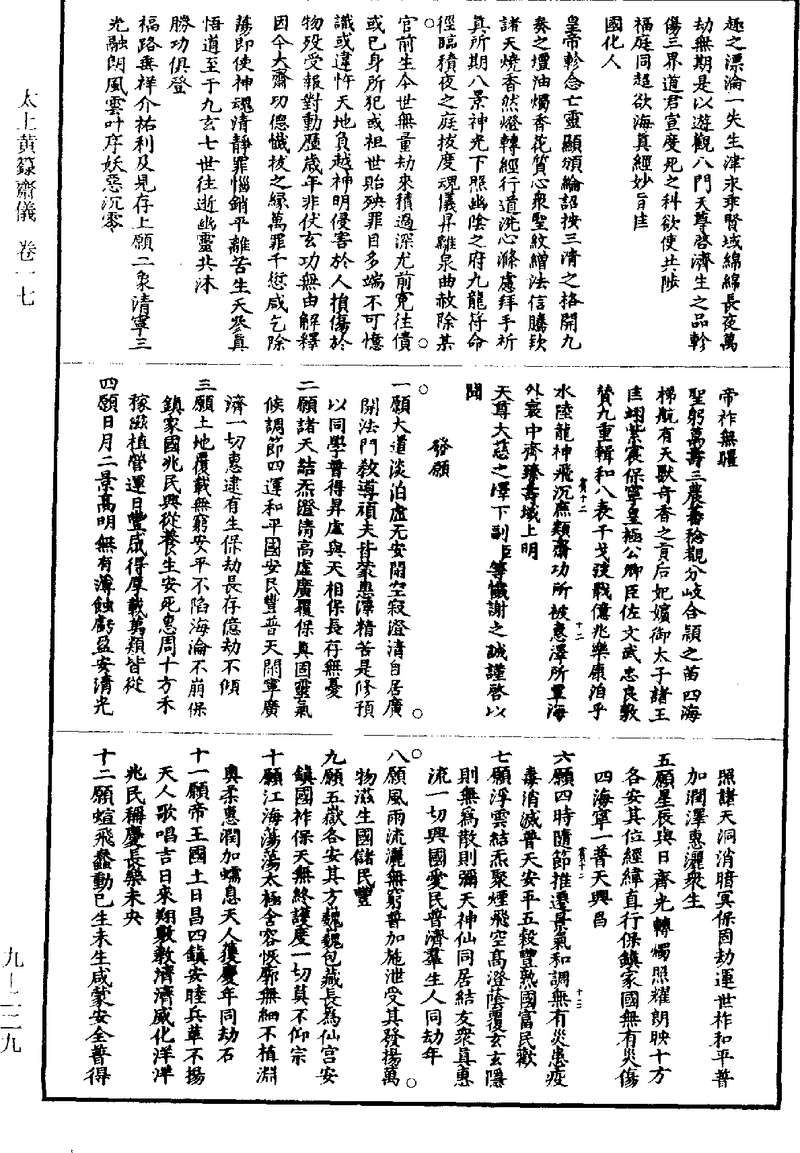 趣之漂淪一失生津永乖賢域綿綿長夜萬
劫無期是以遊觀八門天尊啓濟生之品軫
傷三界道君宣度死之科欲使共陟
福庭同超欲海真經妙旨在
國化人
皇帝軫念亡靈顯頒綸詔按三清之格開九
奏之壇油燭香花質心衆聖紋繒法信騰欵
諸天燒香然燈轉經行道洗心滌慮拜手祈
真所期八景神光下照幽陰之府九龍符命
徑臨積夜之庭拔度魂儀昇離泉曲赦除某
官前生今世無量劫來積過深尤前寃往債
或已身所犯或祖世貽殃罪目多端不可憶
識或違忤天地負越神明侵害於人損傷於
物殁受報對動歷歲年非伏玄功無由解釋
因今大齋功德懺拔之緣萬罪千愆咸乞除
蕩即使神魂清靜罪惱銷平離苦生天登真
悟道至于九玄七世往逝幽靈共沐
勝功俱登
福路垂祥介祐利及見存上願二象清寧三
光融朗風雲叶序妖惡沉零
太上黄籙齋儀 卷一七
帝祚無疆
聖躬萬壽三農蕃稔觀分岐合頴之苗四海
梯航有天獸奇香之貢后妃嬪御太子諸王
匡翊紫宸保寧皇極公卿臣佐文武忠良敷
贊九重輯和八表干戈葼戢億兆樂康泊乎
水陸龍神飛沉庶類齋功所被惠澤所覃海
外寰中齊臻壽域上明
天尊大慈之澤下副臣等懺謝之誠謹啓以
聞
發願
一願大道淡泊虛无安閑空寂澄清自居廣
開法門教導頑夫皆蒙惠澤精苦是修預
以同學普得昇虛與天相保長存無憂
二願諸天結炁澄清高虛廣覆保真固靈氣
候調節四運和平國安民豐普天閑寧廣
濟一切惠逮有生保劫長存億劫不傾
三願土地覆載無窮安平不陷海淪不崩保
鎮家國兆民興從養生安死惠周十方禾
稼滋植營運日豐咸得厚載萬類皆從
四願日月二景高明無有薄蝕虧盈安清光
照諸天洞消暗冥保固劫運世祚和平普
加潤澤惠灑衆生
五願星辰與日齊光轉燭照耀朗映十方
各安其位經緯直行保鎮家國無有災傷
四海寧一普天興昌
六願四時隨節推遷景氣和調無有災患疫
毒消滅普天安平五穀豐熟國富民歡
七願浮雲結炁聚煙飛空高澄蔭覆玄玄隱
則無爲散則彌天神仙同居結友衆真惠
流一切興國愛民普濟羣生人同劫年
八願風雨流灑無窮普加施泄受其發揚萬
物滋生國儲民豐
九願五嶽各安其方巍巍包藏長爲仙宫安
鎮國祚保天無終護度一切莫不仰宗
十願江海蕩蕩太極含容恢廓無細不植淵
奥柔惠潤加蠕息天人獲慶年同劫石
十一願帝王國土日昌四鎮安睦兵革不揚
天人歌唱吉日來翔敷教濟濟威化洋洋
兆民稱慶長樂未央
十二願蝖飛蠢動已生未生咸蒙安全普得
九—二二九